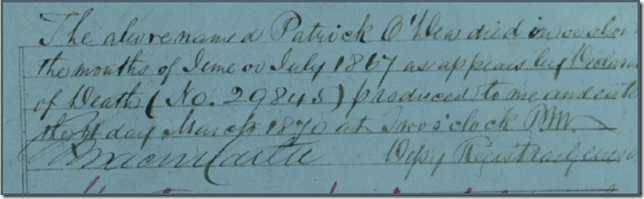 The above named Patrick O'Dea died in or about
the months of June or July 1867 as appears by Declara
of Death (No. 29845) produced to me and ente
the day March 1870 at Two o'clock P.M.
Depy Registrar Gener